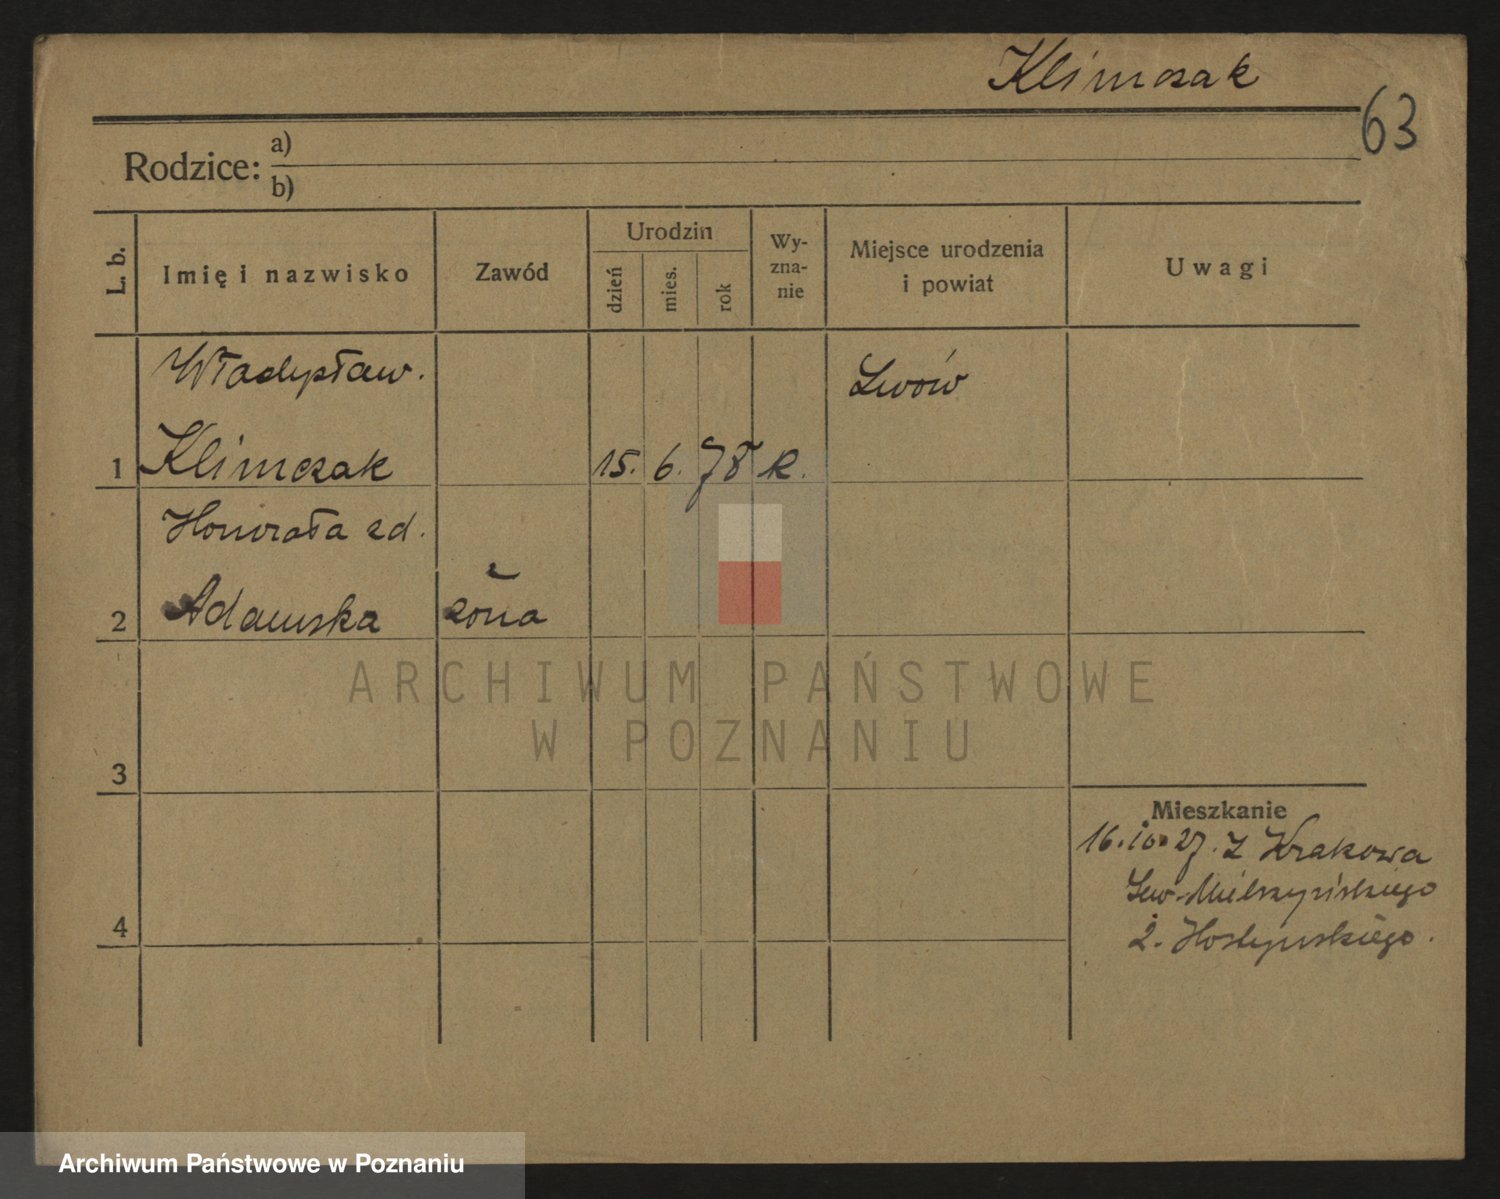 Klimczak
63
Rodzice: a)
b)
L. b.
Imię i nazwisko
Zawód
Urodzin
dzień
mies.
rok
Wy-
zna-
nie
Miejsce urodzenia
i powiat
Uwagi
Władysław.
Lwów
1 Klimczak 15. 6. 78 k.
Honorata zd.
2 Adamska żona
3
4
Mieszkanie
16.10.27. z Krakowa
Sew. Mielżyńskiego
2.
ARCHIWUM PAŃSTWOWE
W POZNANIU
Archiwum Państwowe w Poznaniu